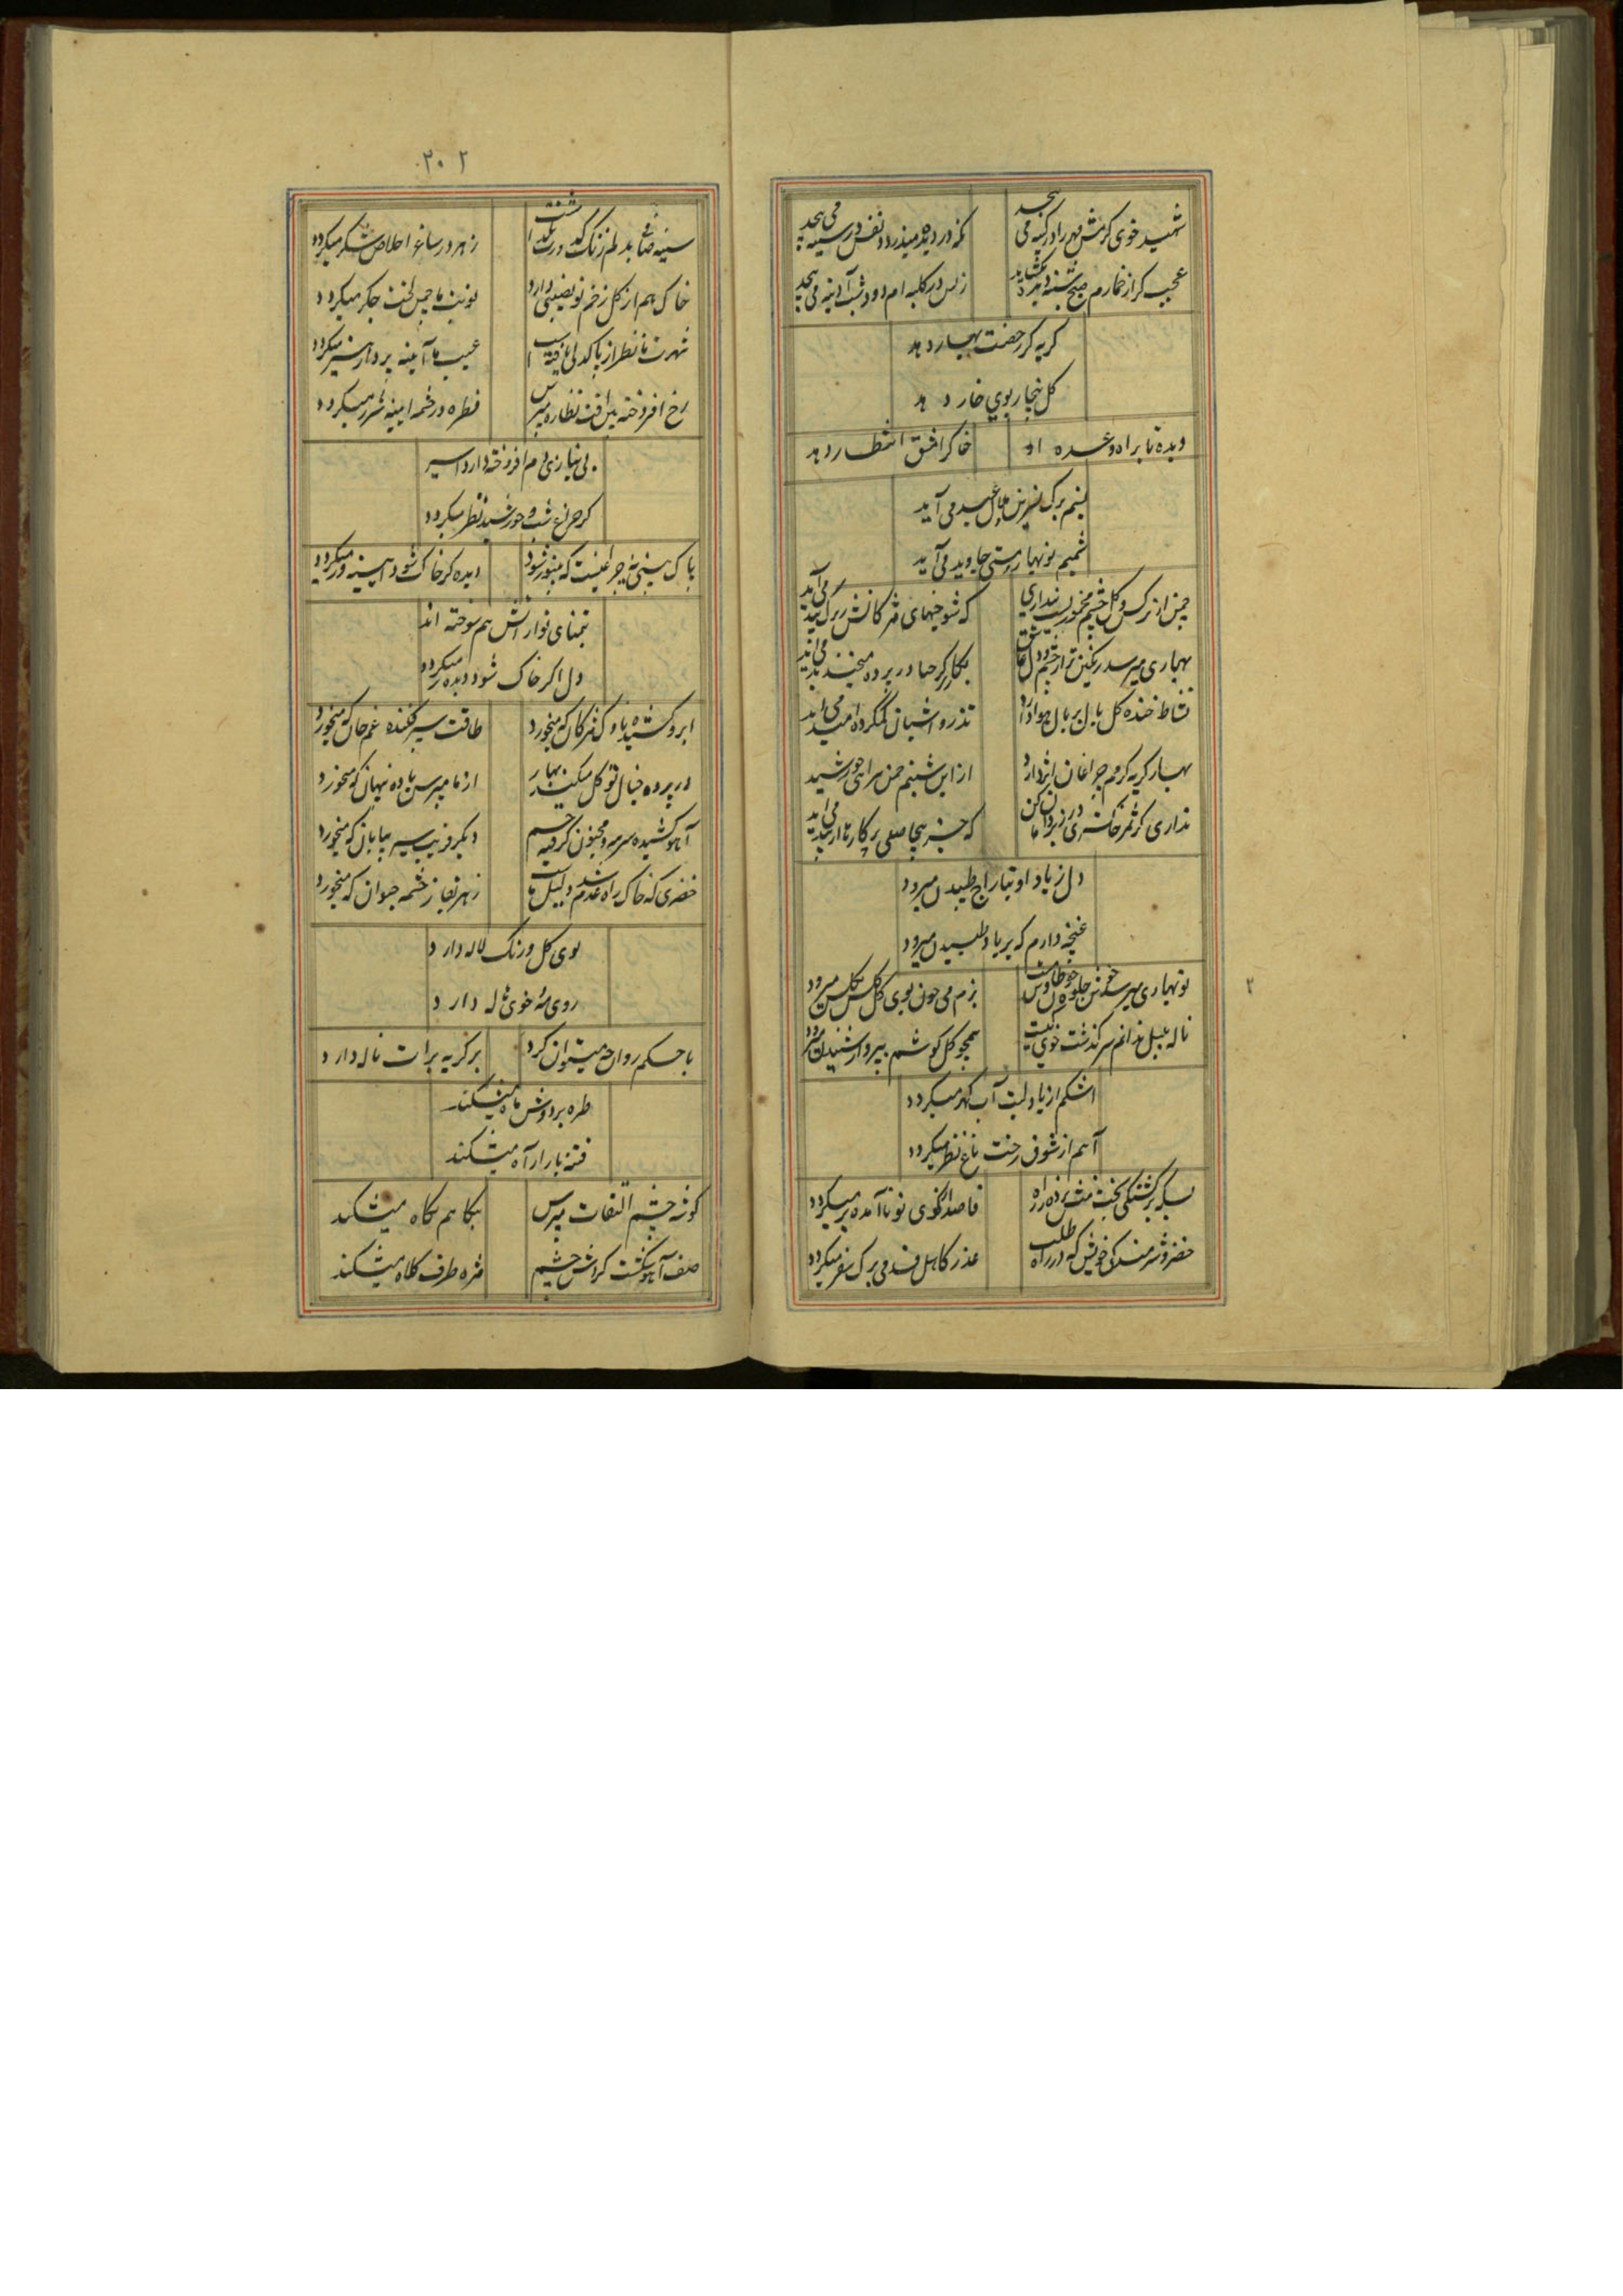 شهید خوی کرمش مهر را در کینه می پیچد
نکه در دیده میدزدد نفس در سینه می پیچد
عجب کر از خمارم صبح شنبه دیده بکشاید
ز بس در کلبه ام دود شب آدینه می پیچد
کریه کر رخصت بهار دهد
کل بیخار بوی خار دهد
دیده تا براه وعده او
خاکرا مشق انتظار دهد
نسیم برک نسرین هلال عید می آید
شمیم نوبهار مستی جاوید می آید
چمن از نرکس و کل چشم مخمور
که شوخیهای مژکانش
بهاری میرسد رنکین تر از چشم و دل عاشق
حیا در پرده
نشاط خنده کل بال بر بال هوا دارد
تذرو آشیان کمکرده امید می آید
بهار کریه کردم چراغان
از این شبنم چمن سرای خورشید
نداری کر ثمر خاکستری در
که
دل ز یاد او بتاراج طپیدن میرود
غنچه دارم که بر باد طپیدن میرود
نوبهاری میرسد خرمن جلوه
بزم می چون بوی کل کلشن بکلشن میرود
ناله بلبل ندانم سرکذشت خوی کیست
همچو کل کوشم
اشکم از یاد لبت آب کهر میکردد
آهم از شوق رخت باغ نظر میکردد
بسکه برکشتکی بخت
قاصد از کوی تو ناآمده بر میکردد
خضر و شرمندکی خویش که در راه طلب
عذر کاهل قدمی برک سفر میکردد
۲
۲۰۲
سینه صافی بدلم زنک کدورت نکذاشت
زهر در ساغر اخلاص شکر میکردد
خاک هم از کل زخم تو نصیبی دارد
نوبت ما چمن لخت جکر میکردد
شهرت ما نظر از پاکدلی یافته است
عیب ما آینه پرداز هنر میکردد
رخ افروخته
قطره در چشمه آیینه شرر میکردد
بی نیازی دم افروخته دارد اسیر
کر چراغ شب و خورشید نظر میکردد
پاک بینی نه چراغیست که بی نور شود
دیده کر خاک شود آیینه ور میکردد
بتمنای تو از آتش هم سوخته اند
دل اکر خاک شود دیده میکردد
ابرو کشیده ناوک مژکان که میخورد
طاقت سپر فکنده غم جان که میخورد
در پرده خیال تو کل میکند بهار
از ما مپرس باده پنهان که میخورد
آهو کشیده سرمه و مجنون کرفته چشم
دیکر فریب سیر بیابان که میخورد
خضری که خاک راه عدم شد دلیل ماست
زهر بقا ز چشمه حیوان که میخورد
بوی کل و رنک لاله دارد
روی مه خوی ژاله دارد
با حسکم روان چه میتوان کرد
بر کریه برات ناله دارد
طره بر دوش ماه میشکند
فتنه را آه میشکند
کوشه چشم التفات مپرس
نکاهم نکاه میشکند
صف آهو شکست کردش چشم
مژه طرف کلاه میشکند